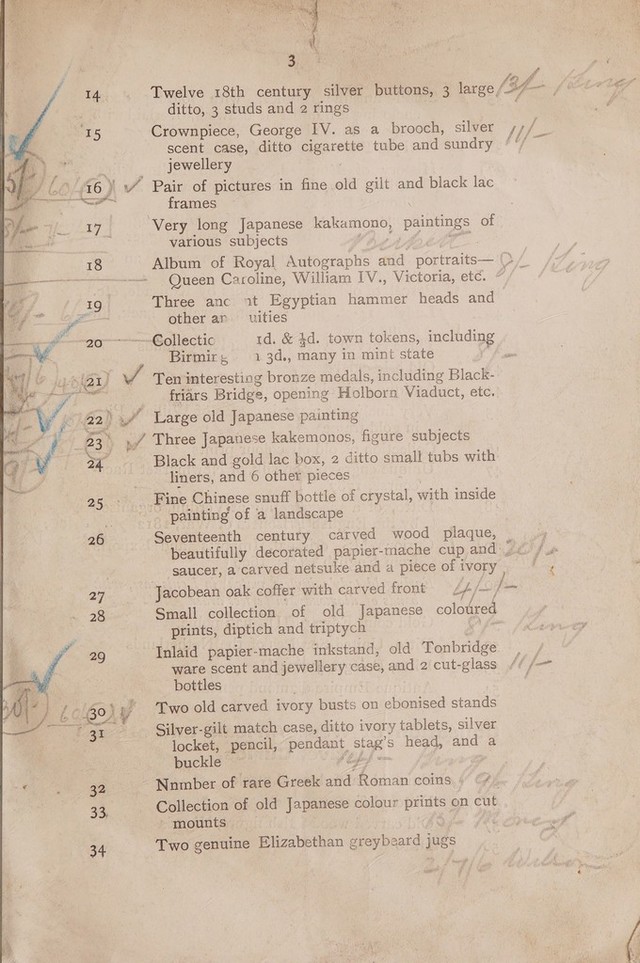 3
14 Twelve 18th century silver buttons, 3 large 13/- King
ditto, 3 studs and 2 rings
15 Crownpiece, George IV. as a brooch, silver 11/-
scent case, ditto cigarette tube and sundry
jewellery
16 Pair of pictures in fine old gilt and black lac
frames
17 Very long Japanese kakamono, paintings of
various subjects
18 Album of Royal Autographs and portraits— King
Queen Caroline, William IV., Victoria, etc.
19 Three anc nt Egyptian hammer heads and
other an uities
20 Collectio 1d. & ½d. town tokens, including
Birming 1 3d., many in mint state
21 Ten interesting bronze medals, including Black-
friars Bridge, opening Holborn Viaduct, etc.
22 Large old Japanese painting
23 Three Japanese kakemonos, figure subjects
24 Black and gold lac box, 2 ditto small tubs with
liners, and 6 other pieces
25 Fine Chinese snuff bottle of crystal, with inside
painting of a landscape
26 Seventeenth century carved wood plaque,
beautifully decorated papier-mache cup and
saucer, a carved netsuke and a piece of ivory
27 Jacobean oak coffer with carved front 4/-/-
28 Small collection of old Japanese coloured
prints, diptich and triptych 8/- King
29 Inlaid papier-mache inkstand, old Tonbridge
ware scent and jewellery case, and 2 cut-glass 11/-
bottles
30 Two old carved ivory busts on ebonised stands
31 Silver-gilt match case, ditto ivory tablets, silver
locket, pencil, pendant stag's head, and a
buckle 14/- King
32 Nnmber of rare Greek and Roman coins 9/- King
33 Collection of old Japanese colour prints on cut
mounts 13/-
34 Two genuine Elizabethan greybeard jugs
2/7/6 Wilson